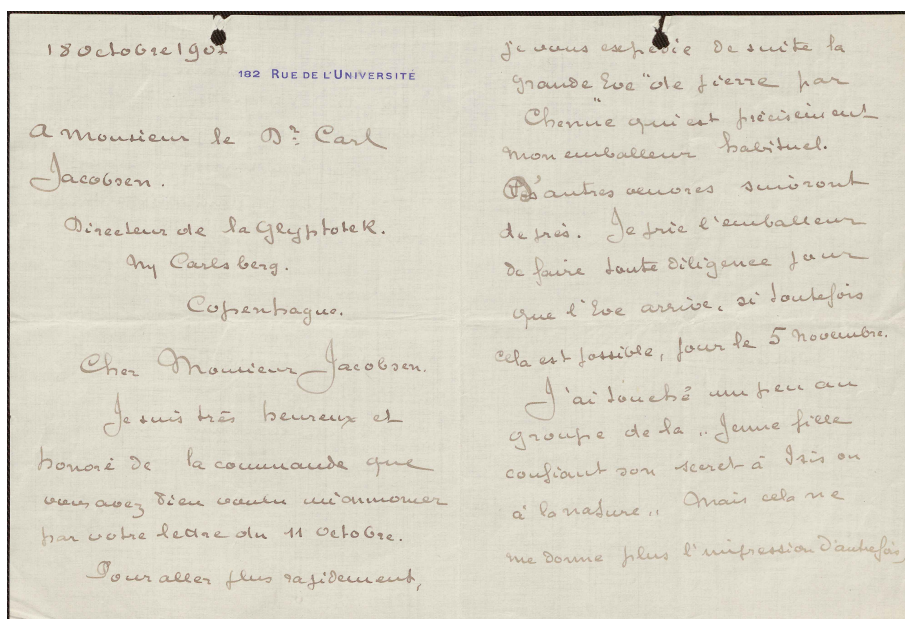 18 octobre 1902
182 RUE DE L'UNIVERSITÉ
A Monsieur le Dr. Carl
Jacobsen.
Directeur de la Glyptotek.
Ny Carlsberg.
Copenhague.
Cher Monsieur Jacobsen.
Je suis très heureux et
honoré de la commande que
vous avez bien voulu
par votre lettre du 11 octobre.
Pour aller plus rapidement,
je vous expédie de suite la
grande "Eve" de pierre par
Chenue qui est précisément
mon emballeur habituel.
D'autres œuvres suivront
de près. Je prie l'emballeur
de faire toute diligence pour
que l'Eve arrive, si toutefois
cela est possible, pour le 5 novembre.
J'ai touché un peu au
groupe de la ,, Jeune fille
confiant son secret à Isis ou
à la nature ,, Mais cela ne
me donne plus l'impression d'autrefois,